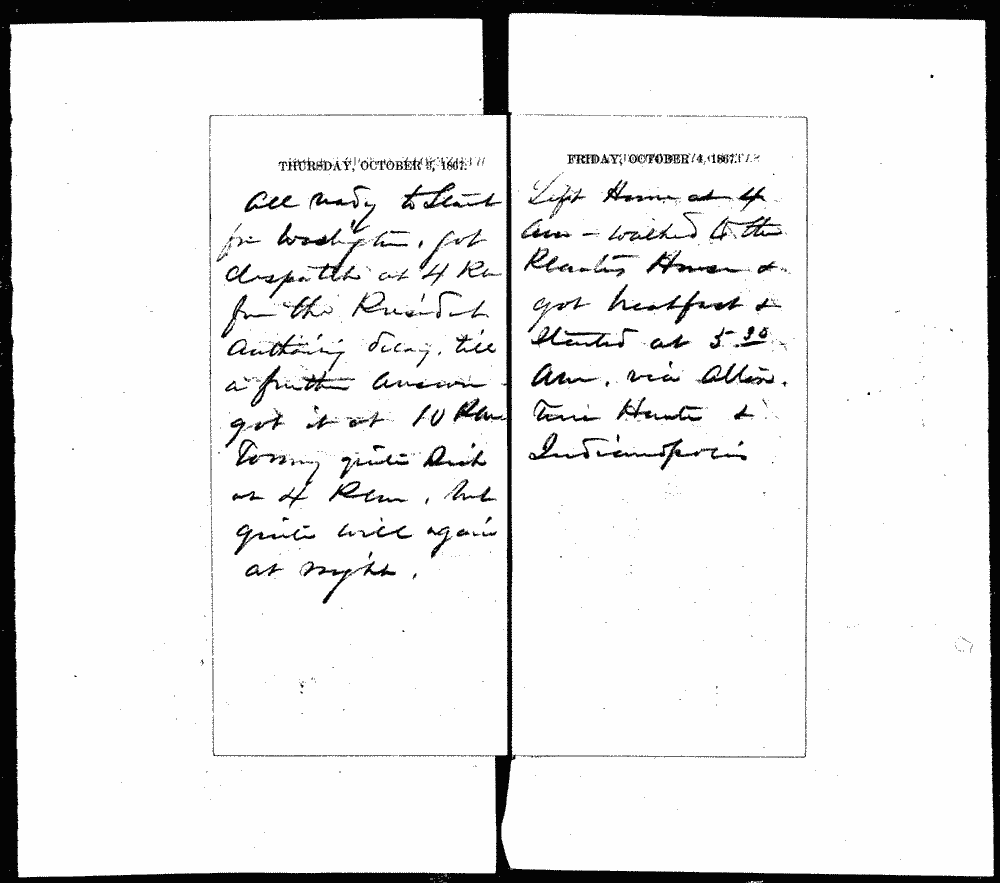 THURSDAY, OCTOBER 3, 1867.
All ready to Start
for Washington. got
despatch at 4 Pm
from the President
Authorizing delay. till
a further answer
got it at 10 Pm
Tommy quite Sick
at 4 Pm, but
quite well again
at night.
FRIDAY, OCTOBER 4, 1867.
Left Home at 4
Am - walked to the
Planters House &
got breakfast &
Started at 5 30
Am. via Alton.
Terre Haute &
Indianapolis